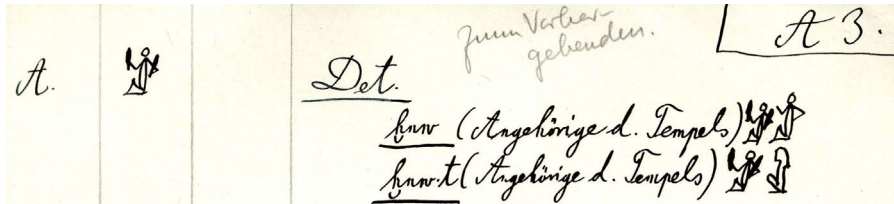 zum Vorher-
gehenden.
A 3.
A.
Det.
ẖnw (Angehörige d. Tempels)
ẖnw.t (Angehörige d. Tempels)